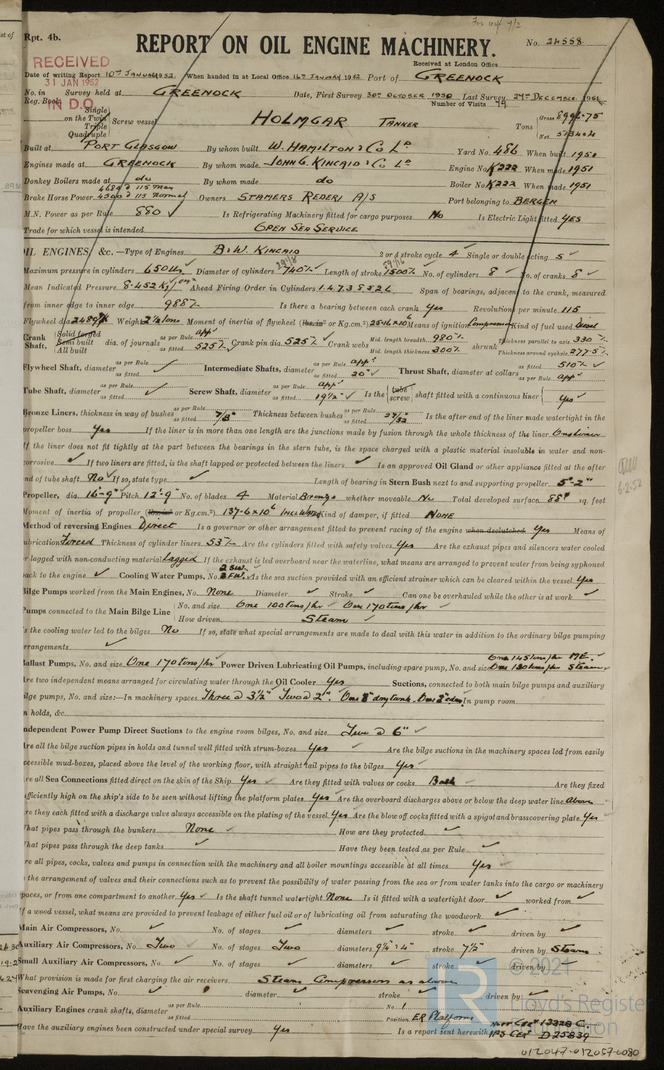 Rpt. 4b.
REPORT ON OIL ENGINE MACHINERY.
No. 24558
RECEIVED
31 JAN 1952
IN D.O.
Received at London Office
Date of writing Report 10th January 1952 When handed in at Local Office 16th January 1952 Port of GREENOCK
No. in Reg. Book. Survey held at GREENOCK Date, First Survey 30th October 1950 Last Survey 24th December 1951
Number of Visits 44
Single
on the Twin
Triple
Quadruple
Screw vessel HOLMGAR TANKER Tons Gross 8996.75
Net
Built at PORT GLASGOW By whom built W. HAMILTON & Co Ld Yard No. 486 When built 1951
Engines made at GREENOCK By whom made JOHN G. KINCAID & Co Ld Engine No. K222 When made 1951
Donkey Boilers made at do By whom made do Boiler No. K222 When made 1951
Brake Horse Power Owners STAMERS REDERI A/S Port belonging to BERGEN
M.N. Power as per Rule 880 Is Refrigerating Machinery fitted for cargo purposes No Is Electric Light fitted YES
Trade for which vessel is intended OPEN SEA SERVICE
OIL ENGINES, &c.—Type of Engines B & W. KINCAID 2 or 4 stroke cycle 4 Single or double acting S
Maximum pressure in cylinders 650 lbs Diameter of cylinders 740 Length of stroke 1500 No. of cylinders 8 No. of cranks 8
Mean Indicated Pressure 8.452 Ahead Firing Order in Cylinders 1.4.7.3.8.5.2.6 Span of bearings, adjacent to the crank, measured
from inner edge to inner edge 988 Is there a bearing between each crank Yes Revolutions per minute 115
Flywheel dia. 2489 Weight 2¼ tons Moment of inertia of flywheel Means of ignition Compression Kind of fuel used Diesel
Crank Shaft, Solid forged Semi built All built dia. of journals as per Rule app as fitted 525 Crank pin dia. 525 Crank webs Mid. length breadth 980 Mid. length thickness 300 shrunk Thickness parallel to axis 330 Thickness around eyehole 277.5
Flywheel Shaft, diameter as per Rule as fitted Intermediate Shafts, diameter as per Rule app as fitted 20" Thrust Shaft, diameter at collars as per Rule app as fitted 510
Tube Shaft, diameter as per Rule as fitted Screw Shaft, diameter as per Rule app as fitted 19½" Is the tube screw shaft fitted with a continuous liner Yes
Bronze Liners, thickness in way of bushes as per Rule as fitted 7/8" Thickness between bushes as per Rule as fitted 27/32 Is the after end of the liner made watertight in the
propeller boss Yes If the liner is in more than one length are the junctions made by fusion through the whole thickness of the liner One liner
If the liner does not fit tightly at the part between the bearings in the stern tube, is the space charged with a plastic material insoluble in water and non-
corrosive If two liners are fitted, is the shaft lapped or protected between the liners Is an approved Oil Gland or other appliance fitted at the after
end of tube shaft No If so, state type Length of bearing in Stern Bush next to and supporting propeller 5'-2"
Propeller, dia. 16'-9" Pitch 12'-9" No. of blades 4 Material Bronze whether moveable No Total developed surface 88 sq. feet
Moment of inertia of propeller 137.6×10⁶ Kind of damper, if fitted NONE
Method of reversing Engines Direct Is a governor or other arrangement fitted to prevent racing of the engine when declutched Yes Means of
lubrication Forced Thickness of cylinder liners 53 Are the cylinders fitted with safety valves Yes Are the exhaust pipes and silencers water cooled
or lagged with non-conducting material Lagged If the exhaust is led overboard near the waterline, what means are arranged to prevent water from being syphoned
back to the engine Cooling Water Pumps, No. 2 S.W. 2 F.W. Is the sea suction provided with an efficient strainer which can be cleared within the vessel Yes
Bilge Pumps worked from the Main Engines, No. None Diameter Stroke Can one be overhauled while the other is at work
Pumps connected to the Main Bilge Line No. and size One 100 tons/hr One 170 tons/hr
How driven Steam
Is the cooling water led to the bilges No If so, state what special arrangements are made to deal with this water in addition to the ordinary bilge pumping
arrangements
Ballast Pumps, No. and size One 170 tons/hr Power Driven Lubricating Oil Pumps, including spare pump, No. and size One 145 tons/hr M.E. One 130 tons/hr Steam
Are two independent means arranged for circulating water through the Oil Cooler Yes Suctions, connected to both main bilge pumps and auxiliary
bilge pumps, No. and size:—In machinery spaces Three @ 3½" Two @ 2" In pump room
In holds, &c.
Independent Power Pump Direct Suctions to the engine room bilges, No. and size Two @ 6"
Are all the bilge suction pipes in holds and tunnel well fitted with strum-boxes Yes Are the bilge suctions in the machinery spaces led from easily
accessible mud-boxes, placed above the level of the working floor, with straight tail pipes to the bilges Yes
Are all Sea Connections fitted direct on the skin of the Ship Yes Are they fitted with valves or cocks Both Are they fixed
sufficiently high on the ship's side to be seen without lifting the platform plates Yes Are the overboard discharges above or below the deep water line Above
Are they each fitted with a discharge valve always accessible on the plating of the vessel Yes Are the blow off cocks fitted with a spigot and brass covering plate Yes
What pipes pass through the bunkers None How are they protected
What pipes pass through the deep tanks Have they been tested as per Rule
Are all pipes, cocks, valves and pumps in connection with the machinery and all boiler mountings accessible at all times Yes
Is the arrangement of valves and their connections such as to prevent the possibility of water passing from the sea or from water tanks into the cargo or machinery
spaces, or from one compartment to another Yes Is the shaft tunnel watertight None Is it fitted with a watertight door worked from
If a wood vessel, what means are provided to prevent leaking of either fuel oil or of lubricating oil from saturating the woodwork
Main Air Compressors, No. No. of stages diameters stroke driven by
Auxiliary Air Compressors, No. Two No. of stages Two diameters 9¼ : 4" stroke 7½ driven by Steam
Small Auxiliary Air Compressors, No. No. of stages diameters stroke driven by
What provision is made for first charging the air receivers Steam Compressors as above
Scavenging Air Pumps, No. diameter stroke driven by
Auxiliary Engines crank shafts, diameter as per Rule as fitted No. Position E.R. Platform
Have the auxiliary engines been constructed under special survey Yes Is a report sent herewith
© 2021
Lloyd's Register
Foundation
012047-012057-0080